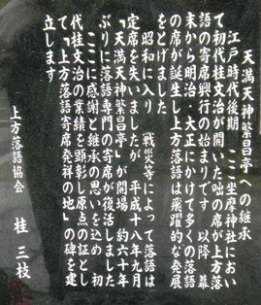 天満天神繁昌亭への継承
江戸時代後期 ここ坐摩神社におい
て初代桂文治が開いた咄の席が上方落
語の寄席興行の始まりです 以降 幕
末から明治・大正にかけて多くの落語
の席が誕生し上方落語は飛躍的な発展
をとげました
昭和に入り 戦災等によって落語は
定席を失いましたが 平成十八年九月
「天満天神繁昌亭」が開場 約六十年
ぶりに落語専門の寄席が復活しました
ここに感謝と継承の思いを込め 初
代桂文治の業績を顕彰し原点の証とし
て「上方落語寄席発祥の地」の碑を建
立します
上方落語協会 桂 三枝